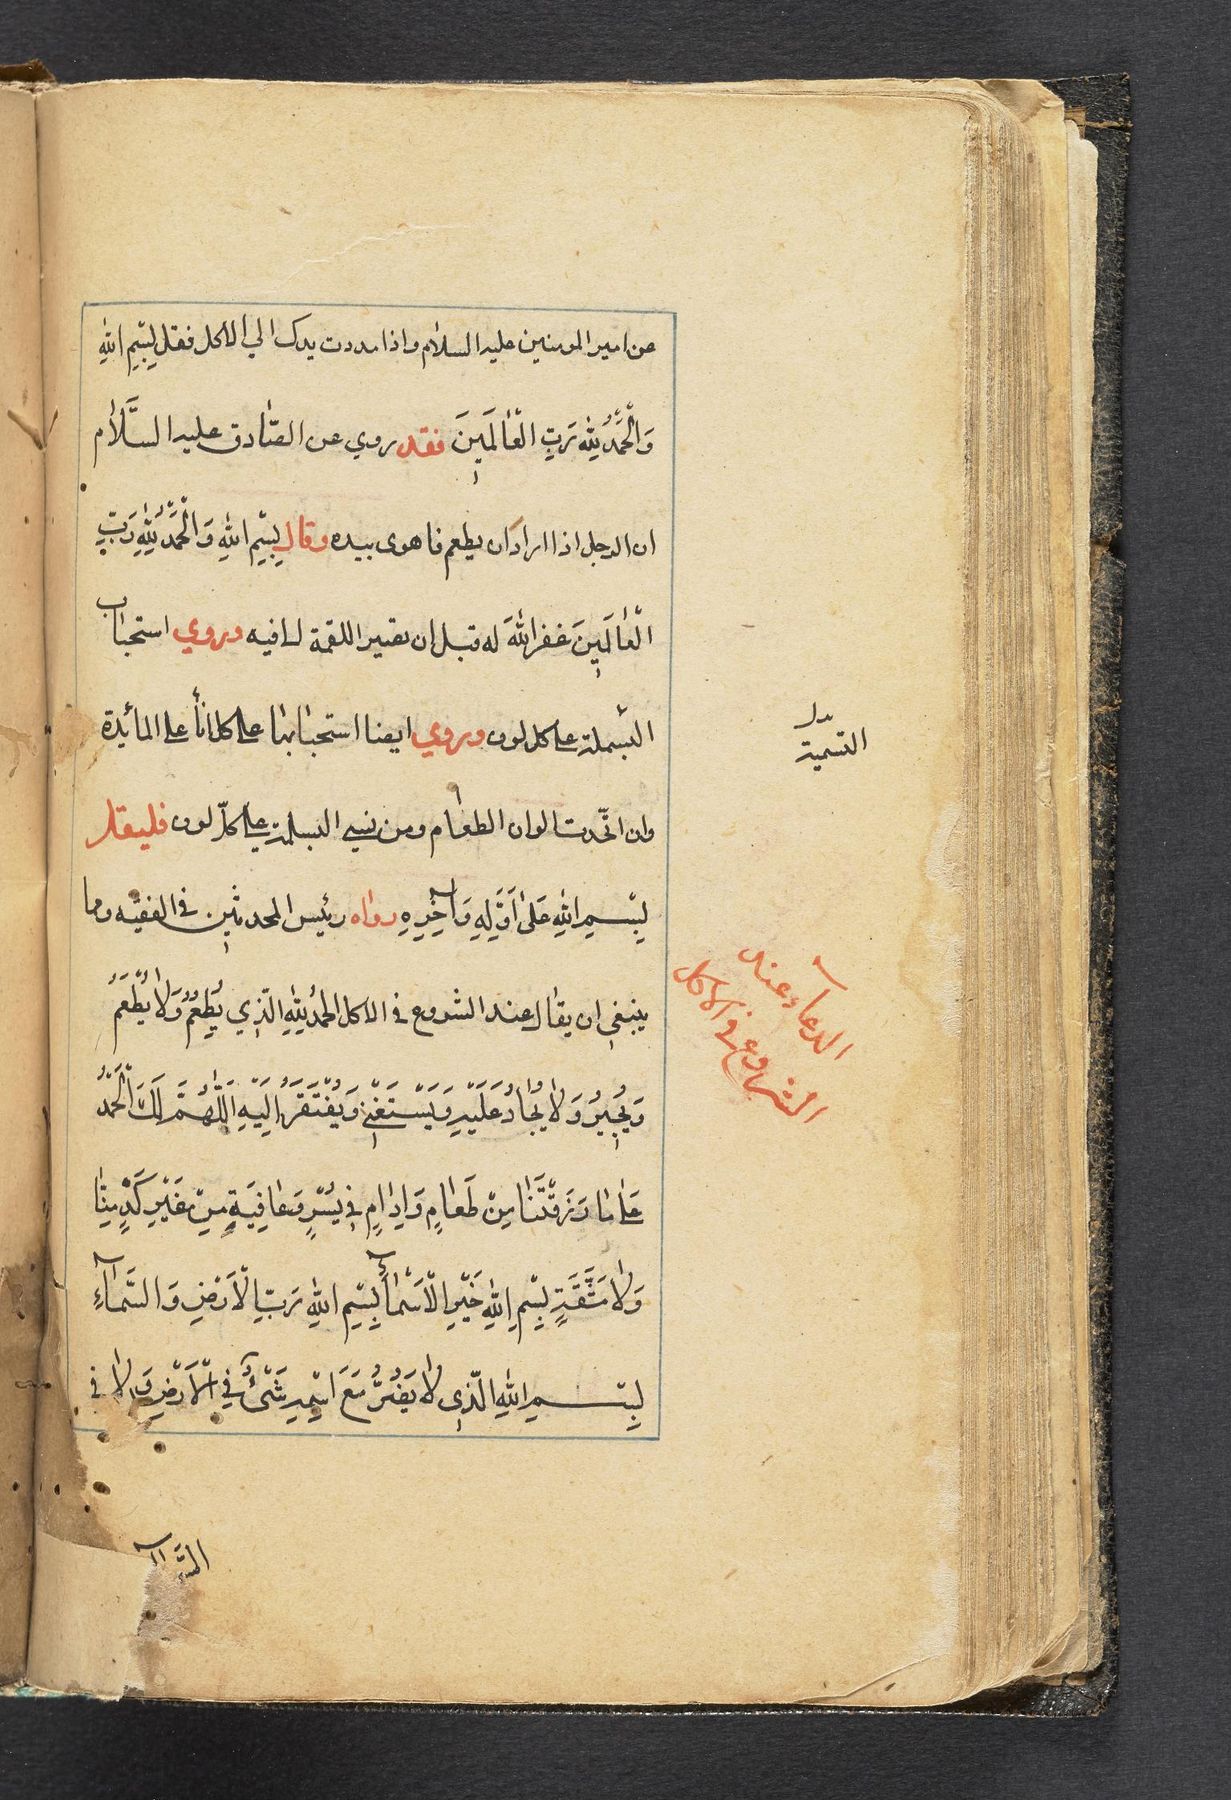 عن امير المومنين عليه السلام واذا مددت يدك الي الاكل فقل بِسْمِ اللهِ
وَالْحَمْدُ لِلّٰهِ رَبِّ الْعٰالَمِينَ فقد روي عن الصّادق عليه السَّلاٰم
ان الرجل اذا اراد ان يطعم فاهوى بيده وقال بِسْمِ اللهِ وَالْحَمْدُ لِلّٰهِ رَبِّ
الْعٰالَمِينَ غفر اللهَ له قبل ان تصير اللقمة الي فيه وروي استحباب
البسملة على كل لون وروي ايضا استحبابها على كل اناء على المائدة
وان اتّحدت الوان الطعام ومن نسي البسملة على كلّ لون فليقل
بِسْمِ اللهِ عَلىٰ اَوَّلِهِ وَآخِرِهِ رواه رئيس المحدثين في الفقيه ومما
ينبغي ان يقال عند الشروع في الاكل الحمدُ لِلّٰهِ الَّذِي يُطْعِمُ وَلاٰ يُطْعَمُ
وَيُجِيرُ وَلاٰ يُجٰارُ عَلَيْهِ وَيَسْتَغْنِي وَيُفْتَقَرُ اِلَيْهِ اَللّٰهُمَّ لَكَ الْحَمْدُ
عَلىٰ مٰا رَزَقْتَنٰا مِنْ طَعٰامٍ وَاِدٰامٍ فِي يُسْرٍ وَعٰافِيَةٍ مِنْ غَيْرِ كَدٍّ مِنّٰا
وَلاٰ مَشَقَّةٍ بِسْمِ اللهِ خَيْرِ الْاَسْمٰآءِ بِسْمِ اللهِ رَبِّ الْاَرْضِ وَالسَّمٰآءِ
بِسْمِ اللهِ الَّذِي لاٰ يَضُرُّ مَعَ اسْمِهِ شَيْءٌ فِي الْاَرْضِ وَلاٰ فِي
السَّمٰآ
التسمية
الدعاء عند
الشروع في الاكل